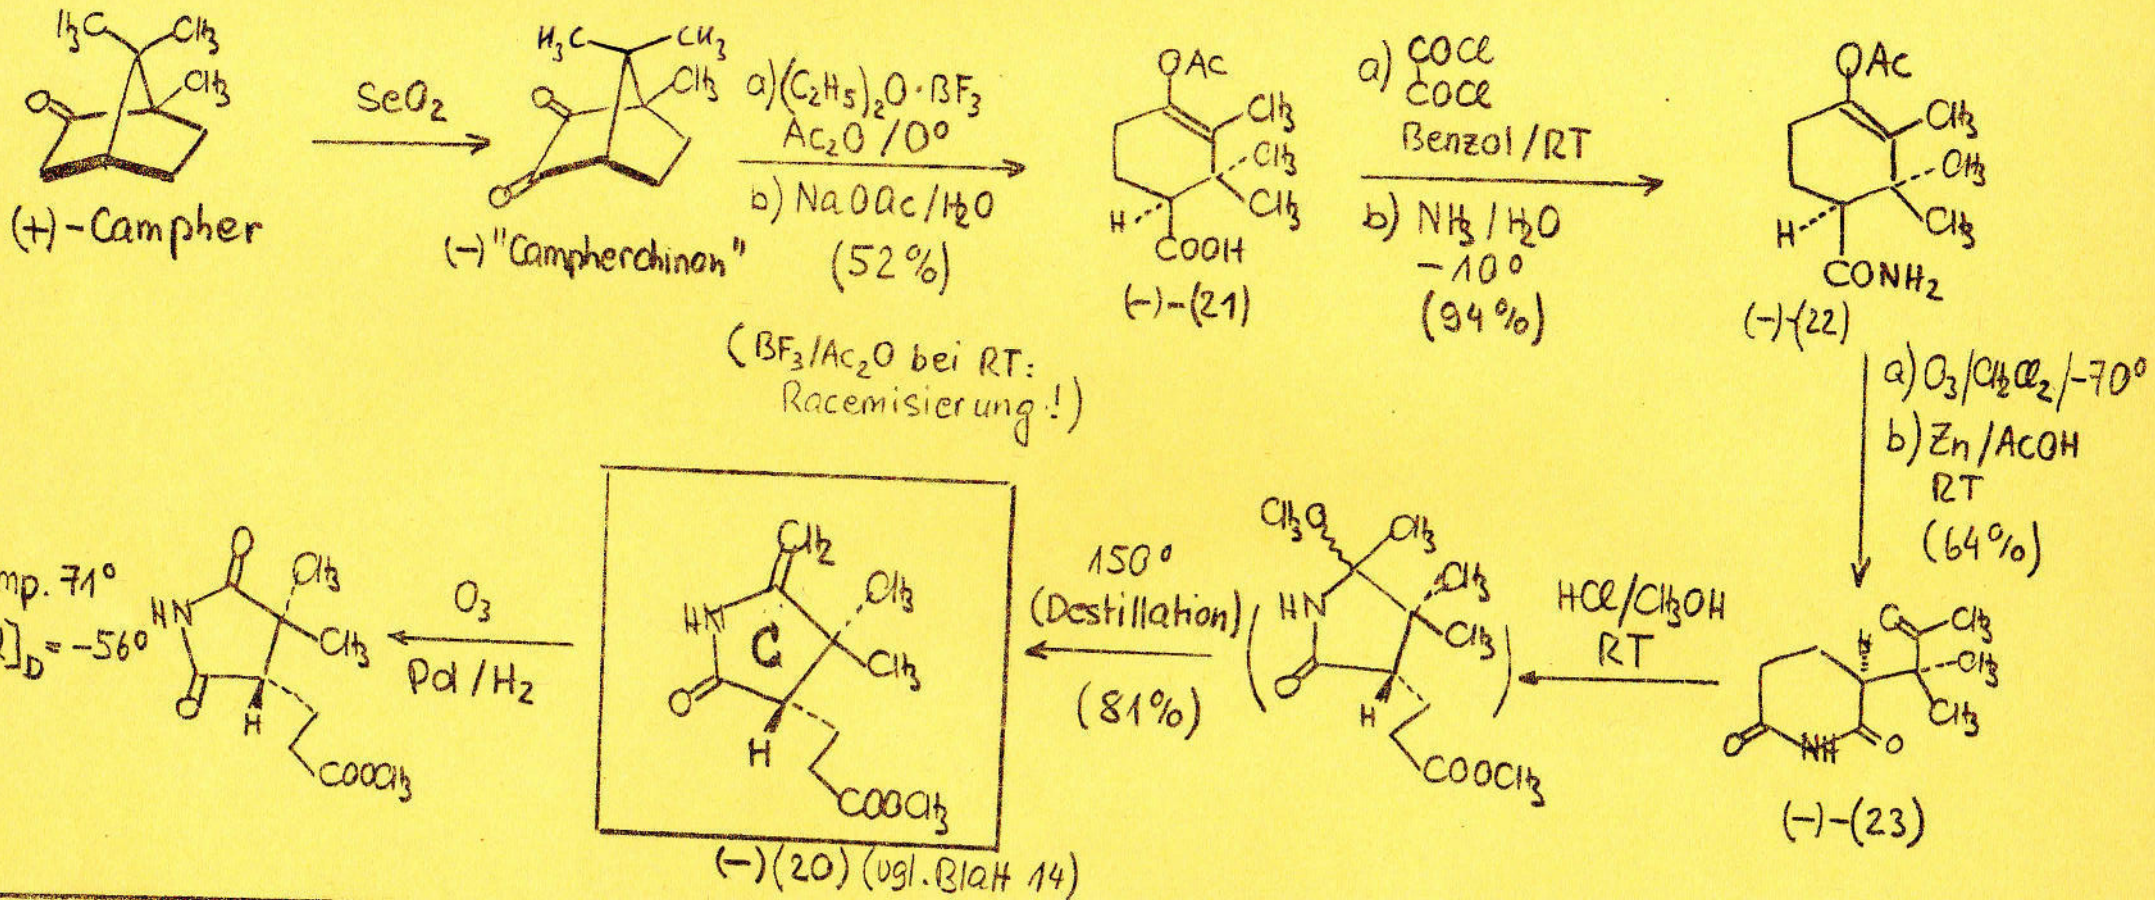 H₃C CH₃
CH₃
O
(+)-Campher
SeO₂
H₃C CH₃
CH₃
O
O
(-)"Campherchinon"
a) (C₂H₅)₂O·BF₃
Ac₂O/0°
b) NaOAc/H₂O
(52%)
(BF₃/Ac₂O bei RT:
Racemisierung!)
OAc
CH₃
CH₃
CH₃
H
COOH
(-)-(21)
a) COCl
COCl
Benzol/RT
b) NH₃/H₂O
-10°
(94%)
OAc
CH₃
CH₃
CH₃
H
CONH₂
(-)-(22)
a) O₃/CH₂Cl₂/-70°
b) Zn/AcOH
RT
(64%)
O CH₃
H
CH₃
CH₃
O NH O
(-)-(23)
HCl/CH₃OH
RT
CH₃O CH₃
CH₃
HN
CH₃
O
H
COOCH₃
150°
(Destillation)
(81%)
CH₂
CH₃
HN
C
CH₃
O
H
COOCH₃
(-)(20) (vgl. Blatt 14)
O₃
Pd/H₂
O
CH₃
HN
CH₃
O
H
COOCH₃
mp. 71°
]D = -56°